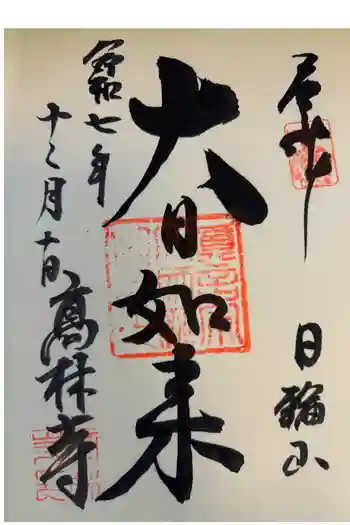 奉拝
日輪山
大日如来
令和七年
十二月十日
高林寺